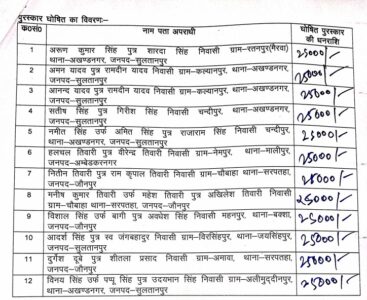 पुरस्कार घोषित का विवरणः–
क०सं० नाम पता अपराधी घोषित पुरस्कार
की धनराशि
1 अरूण कुमार सिंह पुत्र शारदा सिंह निवासी ग्राम–रतनपुर(मैरवा) 25000/-
थाना–अखण्डनगर, जनपद–सुलतानपुर
2 अमन यादव पुत्र रामदीन यादव निवासी ग्राम–कल्यानपुर, थाना–अखण्डनगर, 25000/-
जनपद–सुलतानपुर
3 आनन्द यादव पुत्र रामदीन यादव निवासी ग्राम–कल्यानपुर, 25000/-
थाना–अखण्डनगर, जनपद–सुलतानपुर
4 सतीष सिंह पुत्र गिरीश सिंह निवासी चन्दीपुर, थाना–अखण्डनगर, 25000/-
जनपद–सुलतानपुर
5 नमीत सिंह उर्फ अमित सिंह पुत्र राजाराम सिंह निवासी चन्दीपुर, 25000/-
थाना–अखण्डनगर, जनपद–सुलतानपुर
6 हलचल तिवारी पुत्र वीरेन्द तिवारी निवासी ग्राम–नेमपुर, थाना–मालीपुर, 25000/-
जनपद–अम्बेडकरनगर
7 नितीन तिवारी पुत्र राम कृपाल तिवारी निवासी ग्राम–चौबाहा थाना–सरपतहा, 25000/-
जनपद–जौनपुर
8 मनीष कुमार तिवारी उर्फ महेश तिवारी पुत्र अखिलेश तिवारी निवासी 25000/-
ग्राम–चौबाहा थाना–सरपतहा, जनपद–जौनपुर
9 विशाल सिंह उर्फ बागी पुत्र अवधेश सिंह निवासी महनपुर, थाना–बक्शा, 25000/-
जनपद–जौनपुर
10 आदर्श सिंह पुत्र स्व जंगबहादुर निवासी ग्राम–विरसिंहपुर, थाना–जयसिंहपुर, 25000/-
जनपद–सुलतानपुर
11 दुर्गेश दूबे पुत्र शीतला प्रसाद निवासी ग्राम–अमावा, थाना–सरपतहा, 25000/-
जनपद–जौनपुर
12 विनय सिंह उर्फ पप्पू सिंह पुत्र उदयभान सिंह निवासी ग्राम–अलीमुद्दीनपुर, 25000/-
थाना–अखण्डनगर, जनपद–सुलतानपुर